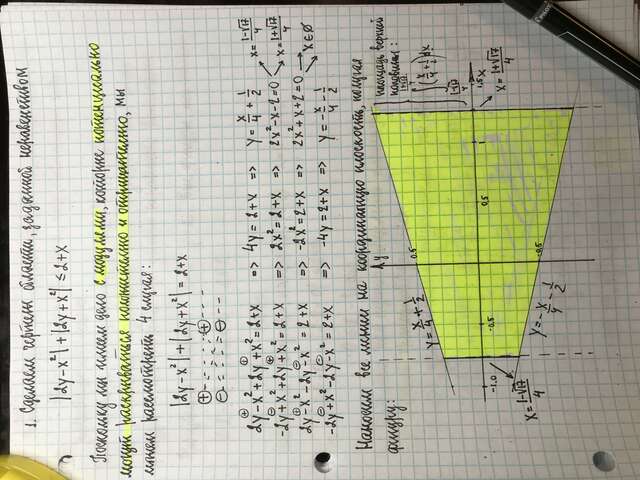 1. Сделаем чертеж области, заданной неравенством
|2y-x²|+|2y+x²| ≤ 2+x
Поскольку мы имеем дело с модулями, которые потенциально
могут раскрываться положительно и отрицательно, мы
имеем рассмотреть 4 случая:
|2y-x²|+|2y+x²| = 2+x
2y-x²+2y+x²=2+x => 4y=2+x => y=x/4+1/2
-2y+x²+2y+x²=2+x => 2x²=2+x => 2x²-x-2=0
x=(1-√17)/4
x=(1+√17)/4
2y-x²-2y-x²=2+x => -2x²=2+x => 2x²+x+2=0 → x∈∅
-2y+x²-2y-x²=2+x => -4y=2+x => y=-x/4-1/2
Наносим все линии на координатную плоскость, получая
фигуру:
площадь верхней
половины:
y
y=x/4+1/2
0.5
-0.5
-1.0
-0.5
0.5
1
1.5
x
y=-x/4-1/2
x=(1-√17)/4
x=(1+√17)/4